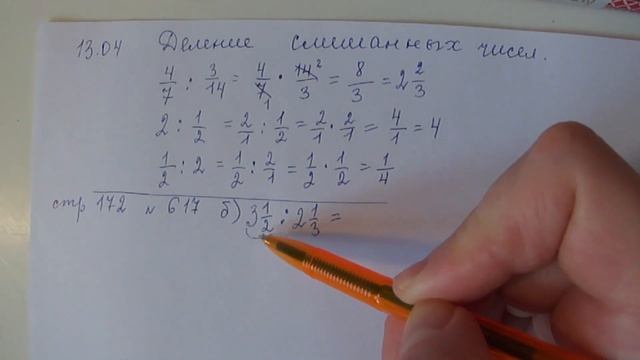 13.04 Деление смешанных чисел.
4/7 : 3/14 = 4/7 1 · 14 2/3 = 8/3 = 2 2/3
2 : 1/2 = 2/1 : 1/2 = 2/1 · 2/1 = 4/1 = 4
1/2 : 2 = 1/2 : 2/1 = 1/2 · 1/2 = 1/4
стр 172 № 617 б) 3 1/2 : 2 1/3 =